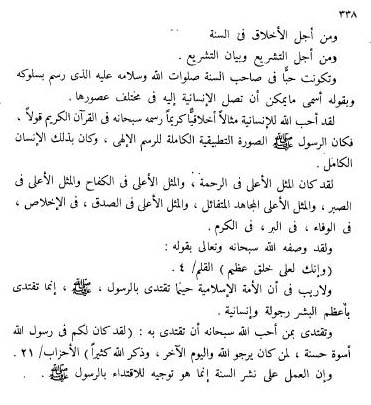 ٣٣٨
ومن أجل الأخلاق فى السنة
ومن أجل التشريع وبيان التشريع .
وتكونت حبًّا فى صاحب السنة صلوات الله وسلامه عليه الذى رسم بسلوكه
وبقوله أسمى مايمكن أن تصل الإنسانية إليه فى مختلف عصورها .
لقد أحب الله للإنسانية مثالاً أخلاقيًّا كريماً رسمه سبحانه فى القرآن الكريم قولاً ،
فكان الرسول ﷺ الصورة التطبيقية الكاملة للرسم الإلهى ، وكان بذلك الإنسان
الكامل .
لقد كان المثل الأعلى فى الرحمة ، والمثل الأعلى فى الكفاح والمثل الأعلى فى
الصبر ، والمثل الأعلى المجاهد المتفائل ، والمثل الأعلى فى الصدق ، فى الإخلاص ،
فى الوفاء ، فى البر ، فى الكرم .
ولقد وصفه الله سبحانه وتعالى بقوله :
( وإنك لعلى خلق عظيم ) القلم/ ٤ .
ولاريب فى أن الأمة الإسلامية حينما تقتدى بالرسول ، ﷺ ، إنما تقتدى
بأعظم البشر رجولة وإنسانية .
وتقتدى بمن أحب الله سبحانه أن تقتدى به : ( لقد كان لكم فى رسول الله
أسوة حسنة ، لمن كان يرجو الله واليوم الآخر ، وذكر الله كثيراً ) الأحزاب/ ٢١ .
وإن العمل على نشر السنة إنما هو توجيه للاقتداء بالرسول ﷺ .